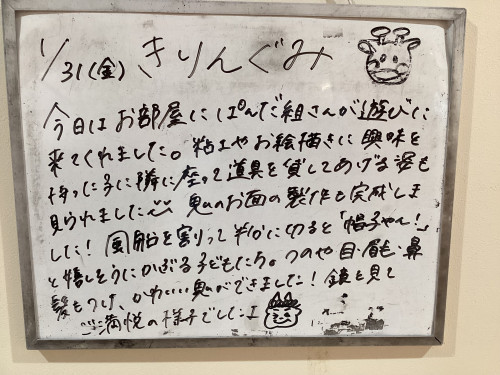 1/31(金) きりんぐみ
今日はお部屋にぱんだ組さんが遊びに
来てくれました。粘土やお絵描きに興味を
持った子に隣に座って道具を貸してあげる姿も
見られました 鬼のお面の製作も完成しま
した! 風船を割って半分に切ると「帽子やん!」
と嬉しそうにかぶる子どもたち。つのや目・眉毛・鼻
髪もつけ、かわいい鬼ができました! 鏡を見て
ご満悦の様子でした